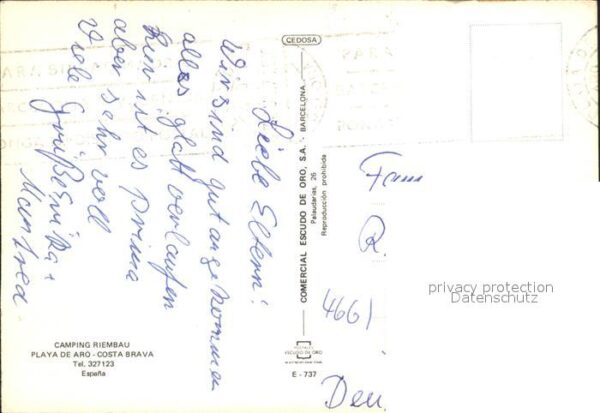 Liebe Eltern!
Wir sind gut angekommen
alles glatt verlaufen
hier ist es prima
aber sehr voll
Viele Grüße
Manfred
CEDOSA
COMERCIAL ESCUDO DE ORO, S.A. - BARCELONA
Palaudarias, 26
Reproducción prohibida
ESCUDO DE ORO
E - 737
CAMPING RIEMBAU
PLAYA DE ARO - COSTA BRAVA
Tel. 327123
España
Fam
R.
4661
Deu
privacy protection
Datenschutz